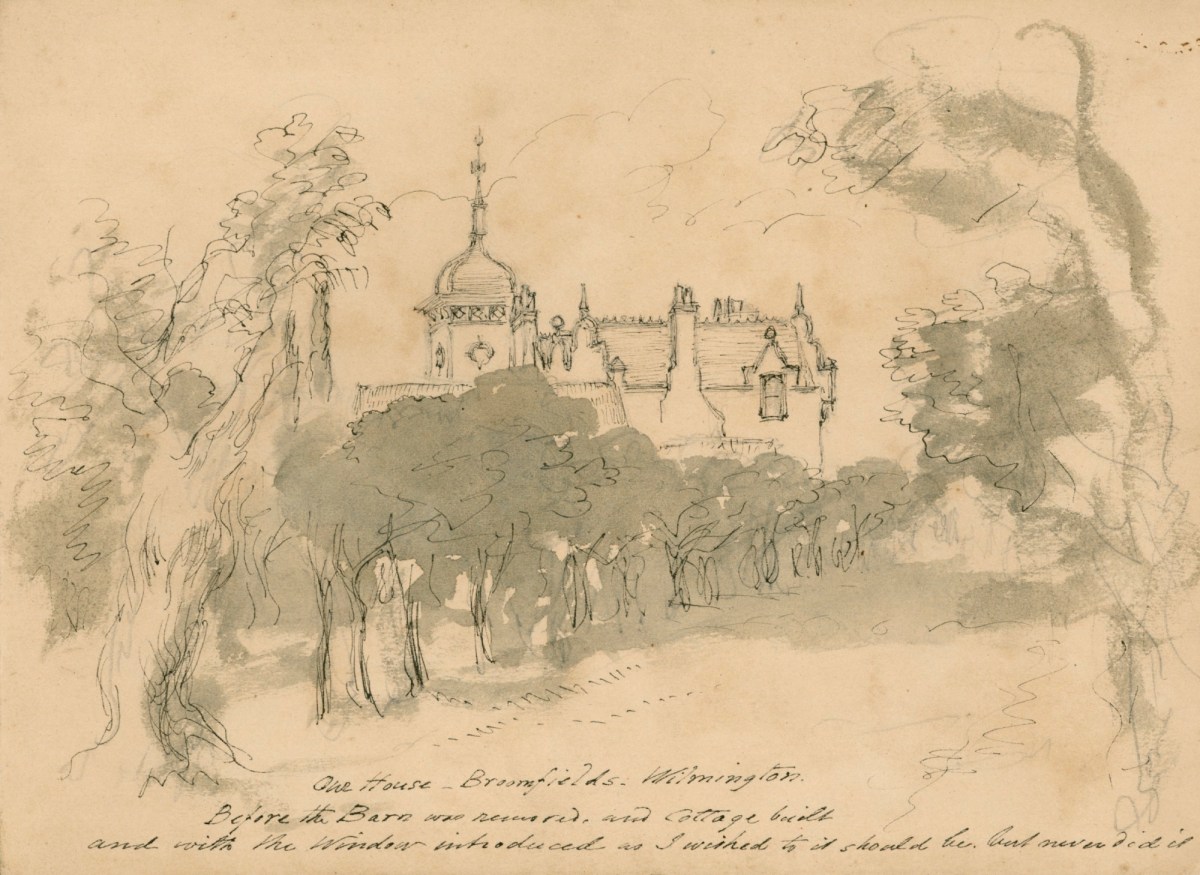 Our House - Broomfields. Wilmington.
Before the Barn was removed. and Cottage built
and with the Window introduced as I wished to it should be. but never did it